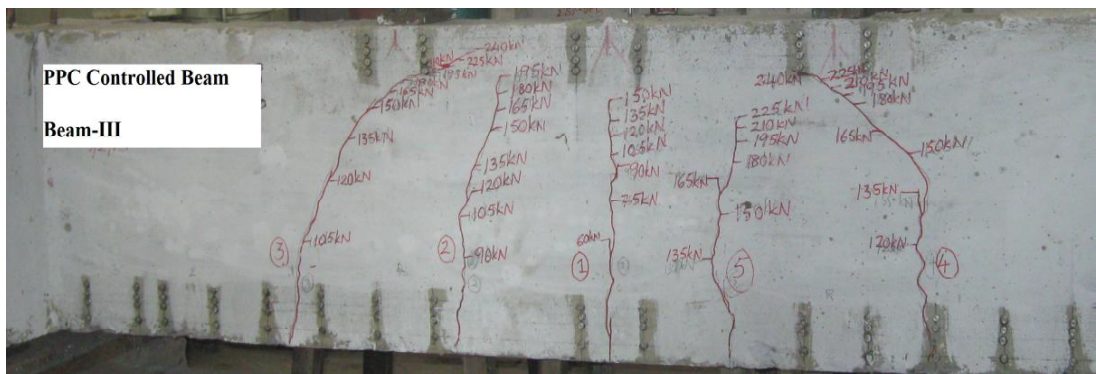 PPC Controlled Beam
Beam-III
240kN
225kN
195kN
165kN
150kN
135kN
120kN
105kN
3
195kN
180kN
165kN
150kN
135kN
120kN
105kN
90kN
2
150kN
135kN
120kN
105kN
90kN
75kN
60kN
1
225kN
210kN
195kN
180kN
165kN
150kN
135kN
5
240kN
225kN
210kN
195kN
180kN
165kN
150kN
135kN
120kN
4